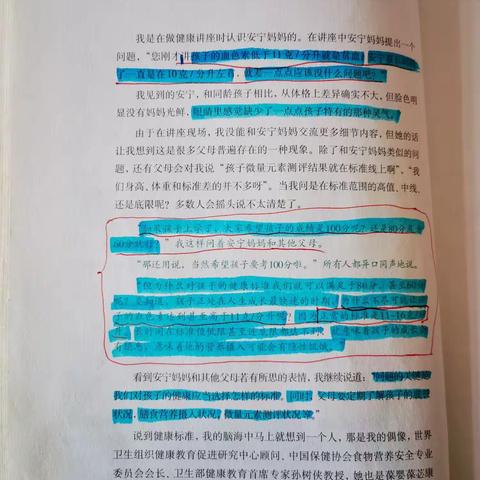 我是在做健康讲座时认识安宁妈妈的。在讲座中安宁妈妈提出一个
问题，“您刚才讲孩子的血色素低于11克/分升就是贫血，安宁
了一直是在10克/分升左右，就差一点点应该没什么问题吧？”
我见到的安宁，和同龄孩子相比，从体格上差异确实不大，但脸色明
显没有妈妈光鲜，眼睛里感觉缺少了一点点孩子特有的那种灵气。
由于在讲座现场，我没能和安宁妈妈交流更多细节内容，但她的话
让我想到这是很多父母普遍存在的一种现象。除了和安宁妈妈类似的问
题，还有父母会对我说“孩子微量元素测评结果就在标准线上啊”、“我
们身高、体重和标准差的并不多呀”。当我问是在标准范围的高值、中线、
还是底限呢？多数人会摇头说不太清楚了。
“如果孩子上学了，大家希望孩子的成绩是100分呢？还是80分或者
60分就行？”我这样问着安宁妈妈和其他父母。
“那还用说，当然希望孩子要考100分啦。”所有人都异口同声地说。
“但为什么对孩子的健康标准我们就可以满足于80分，甚至60分
呢？孩子正处在人生成长最快速的时期，为什么不尽可能让孩
子的血色素达到甚至高于11克/分升呢？因为正常的标准是11-16克/分
升，长时间在标准值低限甚至连底限都达不到，就意味着孩子的成长
有隐患，意味着他的营养摄入可能会有隐性饥饿。”
看到安宁妈妈和其他父母若有所思的表情，我继续说道：“问题的关键是
我们对孩子的健康应当选择怎样的标准。同时，父母要定期了解孩子的成长
状况，膳食营养摄入状况，微量元素测评状况等。”
说到健康标准，我的脑海中马上就想到一个人，那是我的偶像，世界
卫生组织健康教育促进研究中心顾问、中国保健协会食物营养安全专业
委员会会长、卫生部健康教育首席专家孙树侠教授，她也是葆婴葆苾康